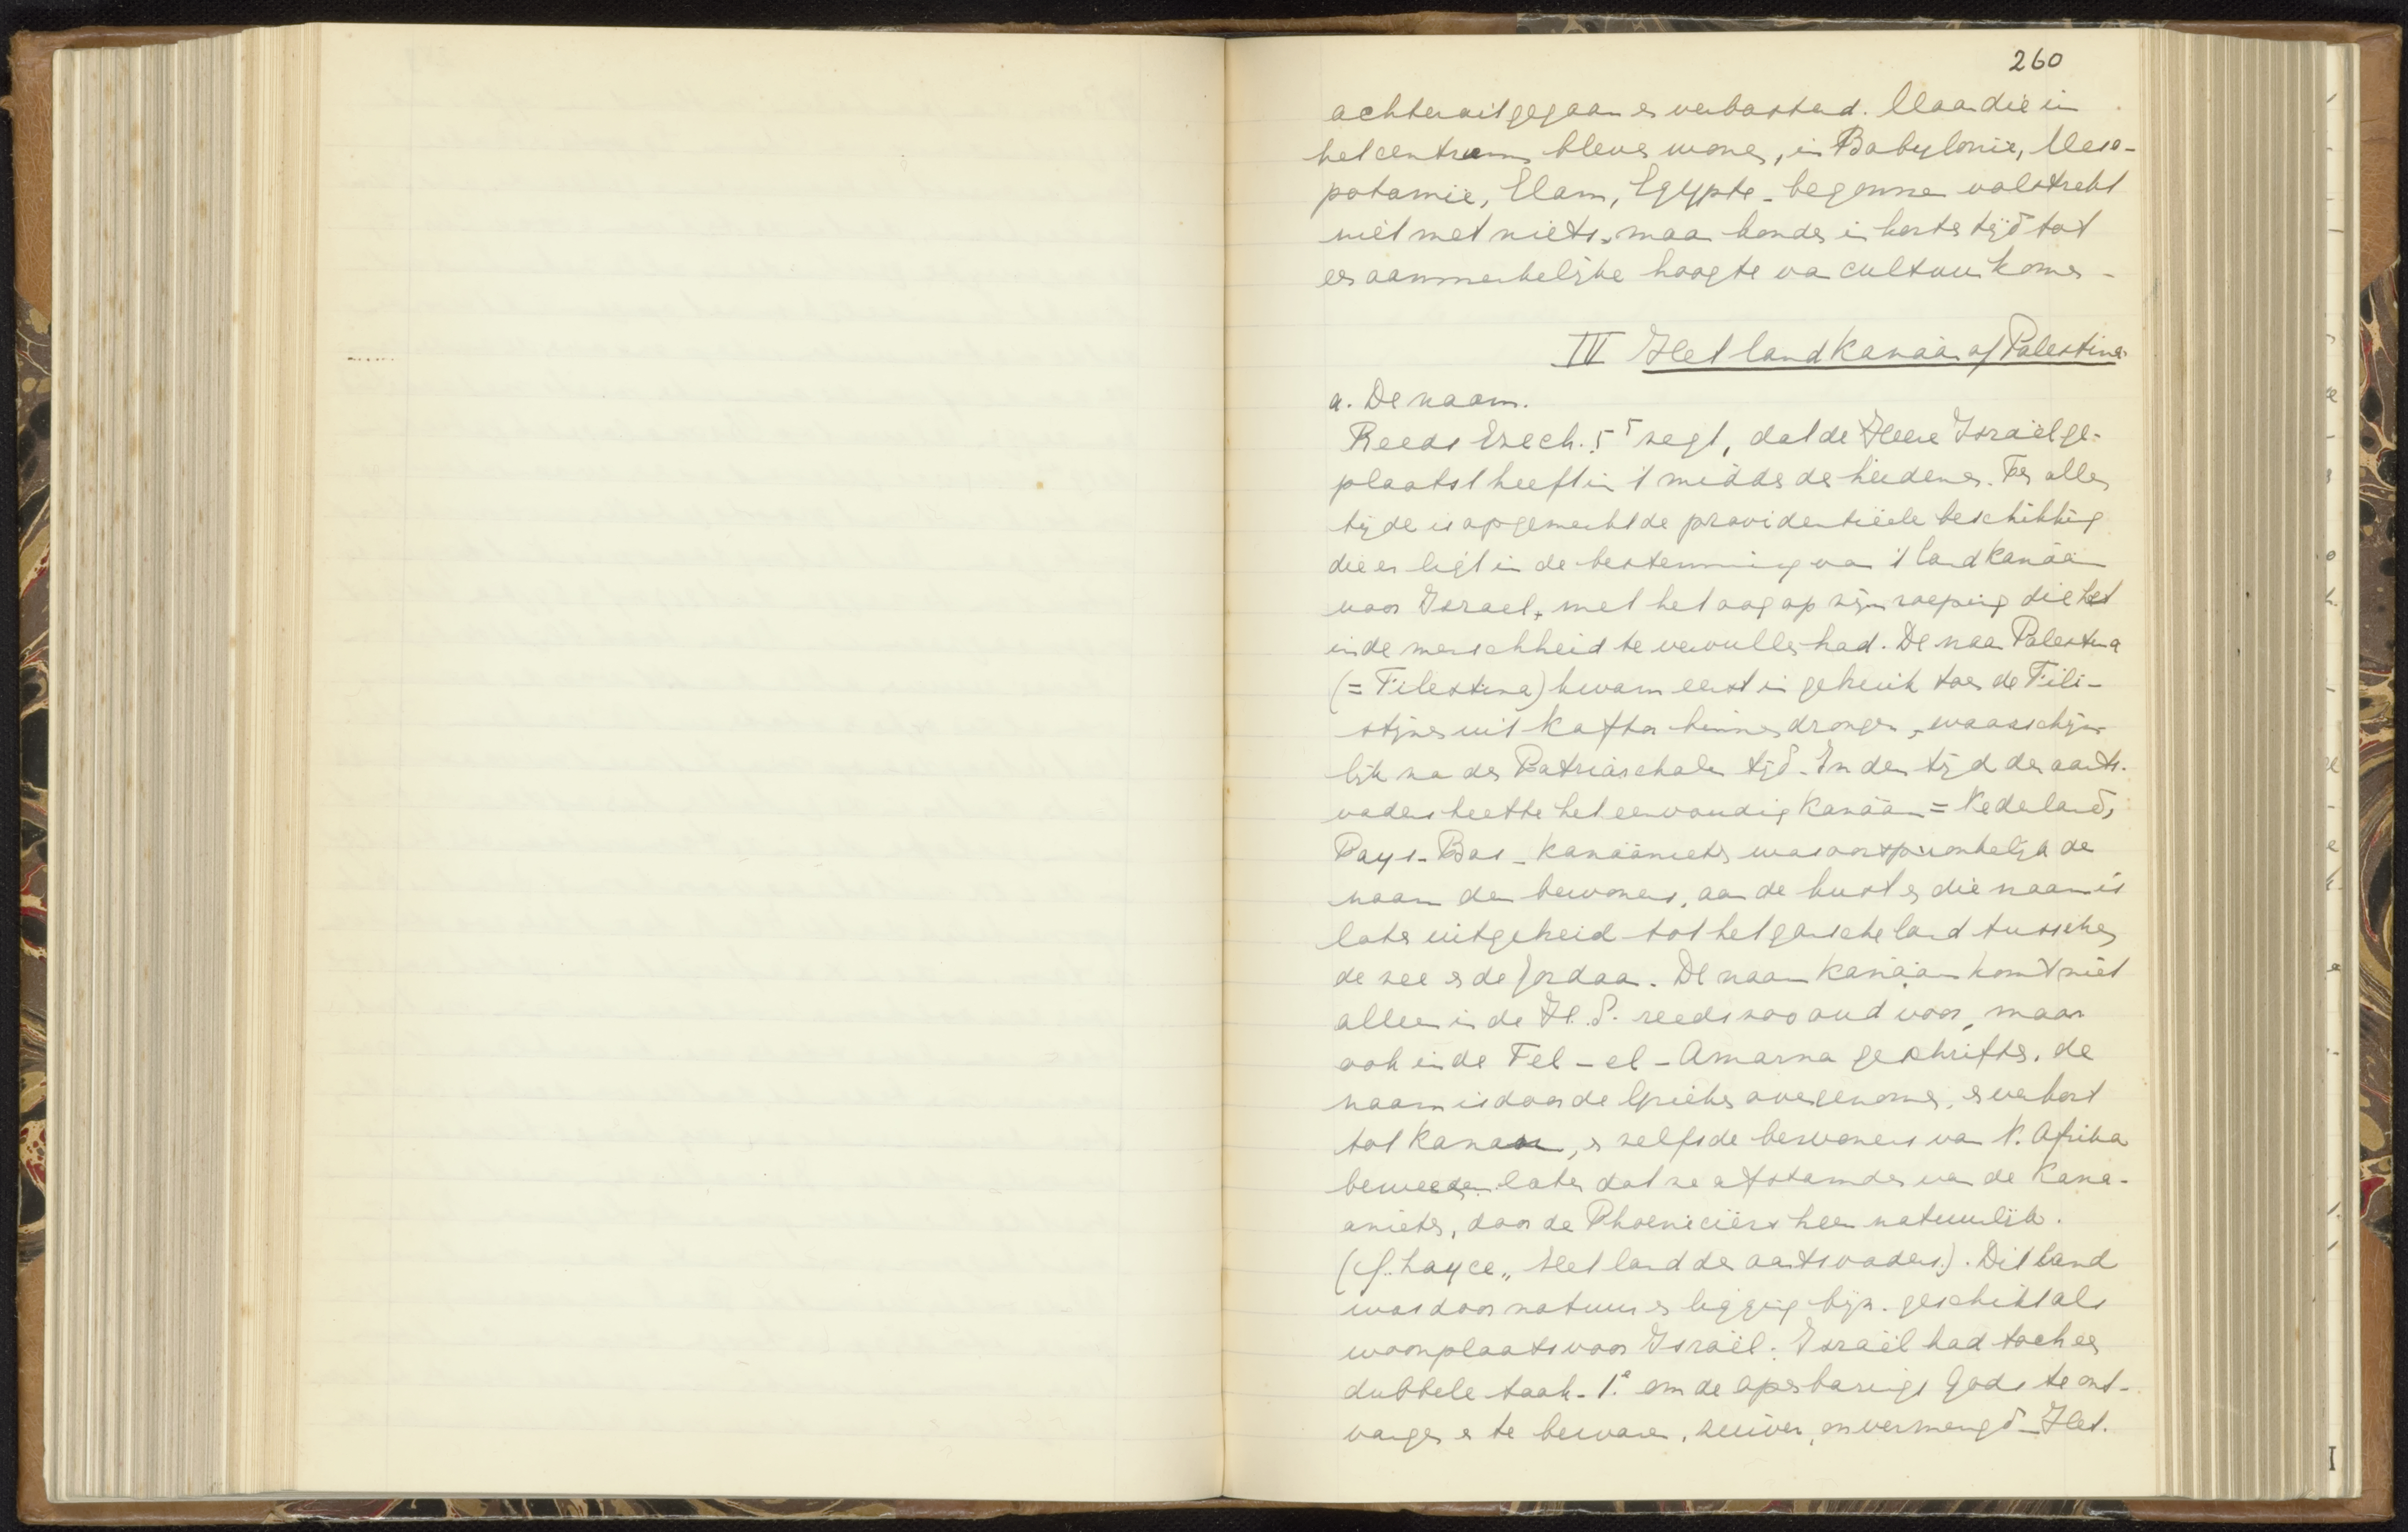 260
achteruitgegaan en verbasterd. Maar die in
het centrum bleven wonen, in Babylonië, Meso-
potamië, Elam, Egypte - begonnen volstrekt
niet met niets, maar konden in korten tijd tot
een aanmerkelijke hoogte van cultuur komen -
IV Het land Kanaän of Palestina
a. De naam.
Reeds Ezech. 5⁵ zegt, dat de Heere Israël ge-
plaatst heeft in 't midden der heidenen. Ten allen
tijde is opgemerkt de providentiëele beschikking
die er ligt in de bestemming van 't land Kanaän
voor Israel, met het oog op zijn roeping die het
in de menschheid te vervullen had. De naam Palestina
(= Filestina) kwam eerst in gebruik toen de Fili-
stijnen uit Kafthor binnendrongen, waarschijn-
lijk na den Patriarchalen tijd. In den tijd der aarts-
vaders heette het eenvoudig Kanaän = Nederland,
Pays-Bas - Kanaänieten was oorspronkelijk de
naam der bewoners, aan de kust en die naam is
later uitgebreid tot het gansche land tusschen
de zee en de Jordaan. De naam Kanaän komt niet
alleen in de H. S. reeds zoo oud voor, maar
ook in de Tel-el-Amarna geschriften. de
naam is door de Grieken overgenomen, en verkort
tot Kanaan, en zelfs de bewoners van N. Afrika
beweerden later dat ze afstamden van de Kana-
anieten, door de Phoeniciërs heen natuurlijk.
(cf. Sayce „ Het land der aartsvaders.). Dit land
was door natuur en ligging bijz. geschikt als
woonplaats voor Israël. Israël had toch een
dubbele taak - 1.e om de openbaring Gods te ont-
vangen en te bewaren, zuiver, onvermengd - Het.